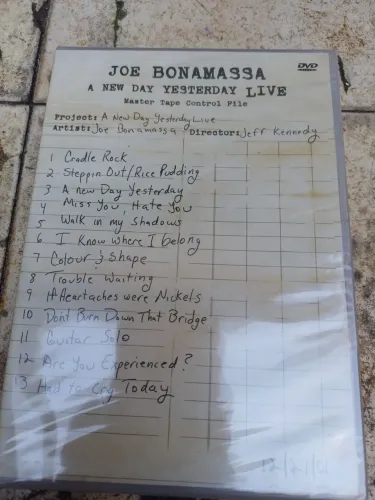 DVD
JOE BONAMASSA
A NEW DAY YESTERDAY LIVE
Master Tape Control File
Project: A New Day Yesterday Live
Artist: Joe Bonamassa Director: Jeff Kennedy
1 Cradle Rock
2 Steppin Out/Rice Pudding
3 A new Day Yesterday
4 Miss You, Hate You
5 Walk in my Shadows
6 I Know Where I belong
7 Colour & Shape
8 Trouble Waiting
9 If Heartaches were Nickels
10 Dont Burn Down That Bridge
11 Guitar Solo
12 Are you Experienced?
13 Had to Cry Today